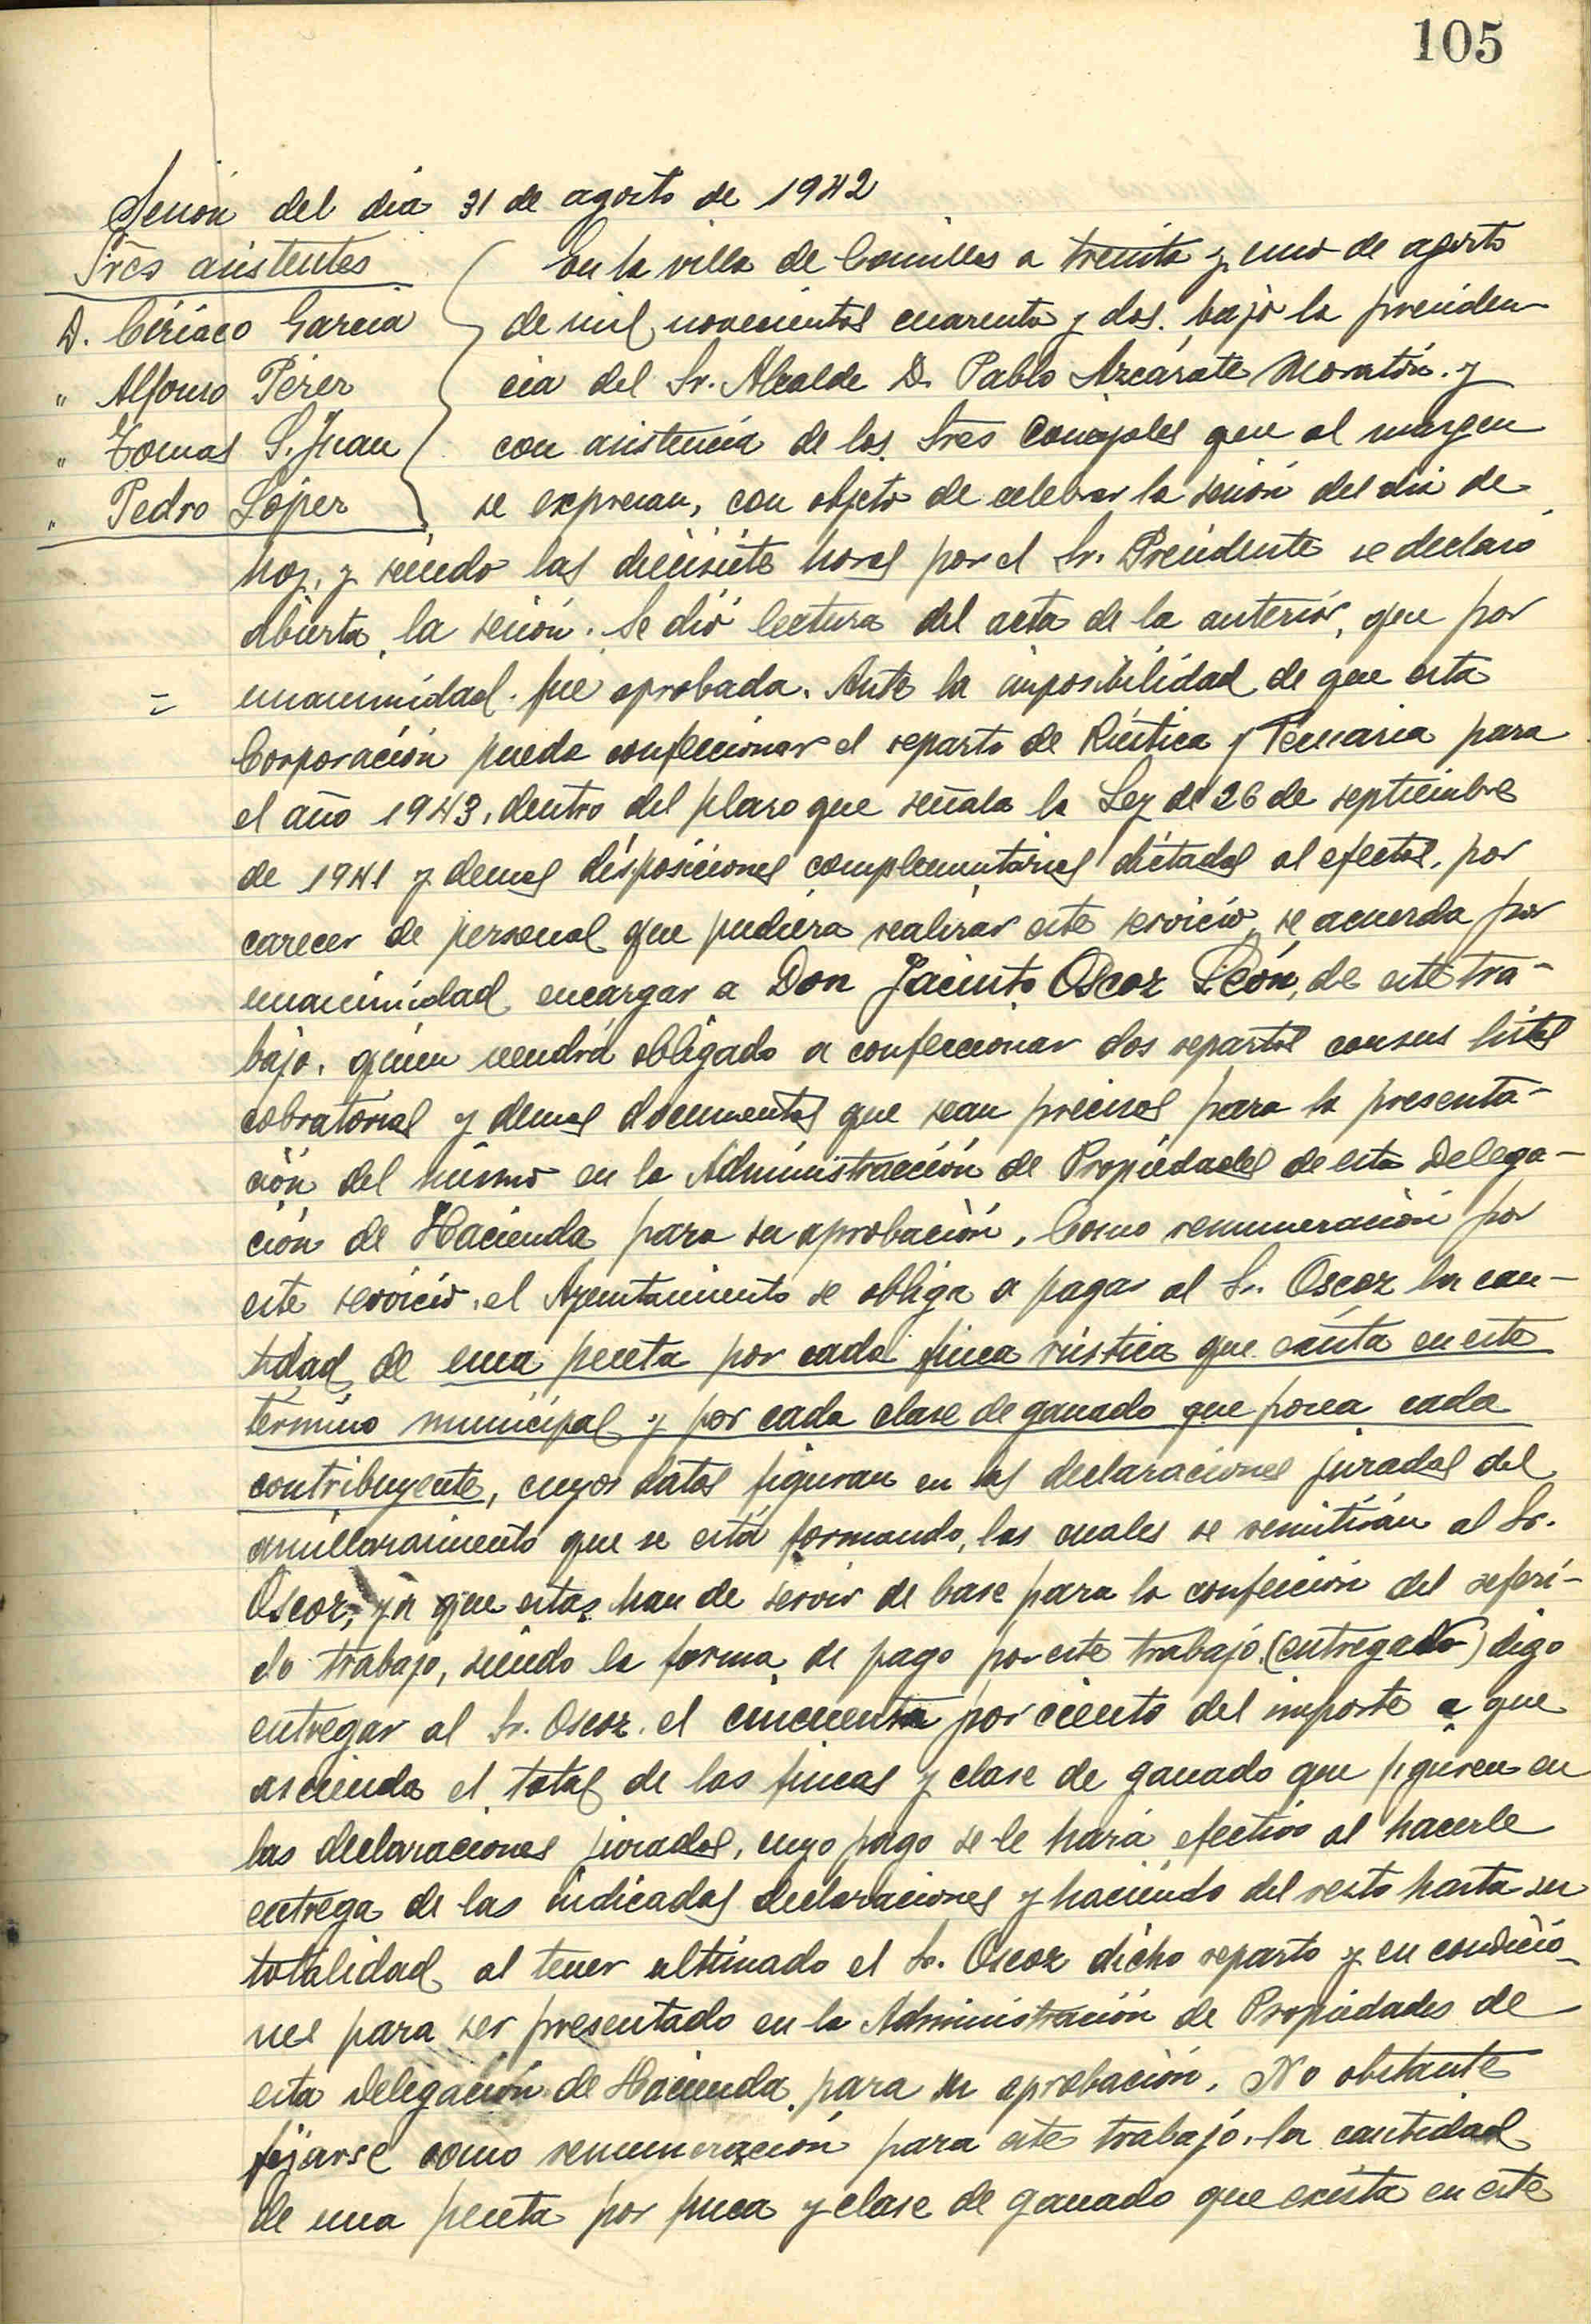 105
Sesión del dia 31 de agosto de 1942
Sres asistentes
D. Ciriaco Garcia
" Alfonso Pérez
" Tomas S. Juan
" Pedro López
En la villa de Cornillas a treinta y uno de agosto
de mil novecientos cuarenta y dos. bajo la presiden
cia del Sr. Alcalde D. Pablo Azcárate Moratón. y
con asistencia de los Sres Concejales que al margen
se expresan, con objeto de celebrar la sesión del dia de
hoy, y siendo las diecisiete horas por el Sr. Presidente se declaró
abierta la sesión. Se dió lectura del acta de la anterior, que por
= unanimidad fue aprobada. Ante la imposibilidad de que esta
Corporación pueda confeccionar el reparto de Rústica y Pecuaria para
el año 1943, dentro del plazo que señala la Ley de 26 de septiembre
de 1941 y demas disposiciones complementarias dictadas al efecto, por
carecer de personal que pudiera realizar este servicio, se acuerda por
unanimidad encargar a Don Jacinto Oscoz León, de este tra-
bajo, quien vendrá obligado a confeccionar dos repartos con sus listas
cobratorias y demas documentos que sean precisos para la presenta-
ción del mismo en la Administracción de Propiedades de esta Delega-
ción de Hacienda para su aprobación. Como remuneración por
este servicio, el Ayuntamiento se obliga a pagar al Sr. Oscoz la can-
tidad de una peseta por cada finca rústica que exista en este
término municipal y por cada clase de ganado que posea cada
contribuyente, cuyos datos figuran en las declaraciones juradas del
amillaramiento que se está formando, las cuales se remitirán al Sr.
Oscoz, ya que estas han de servir de base para la confeción del referi-
do trabajo, siendo la forma de pago por este trabajo (entregado) digo
entregar al Sr. Oscoz el cincuenta por ciento del importe a que
ascienda el total de las fincas y clase de ganado que figuren en
las declaraciones juradas, cuyo pago se le hará efectivo al hacerle
entrega de las indicadas declaraciones y haciendo del resto hasta su
totalidad al tener ultimado el Sr. Oscoz dicho reparto y en condicio-
nes para ser presentado en la Administración de Propiedades de
esta Delegación de Hacienda para su aprobación. No obstante
fijarse como remuneración para este trabajo la cantidad
de una peseta por finca y clase de ganado que exista en este